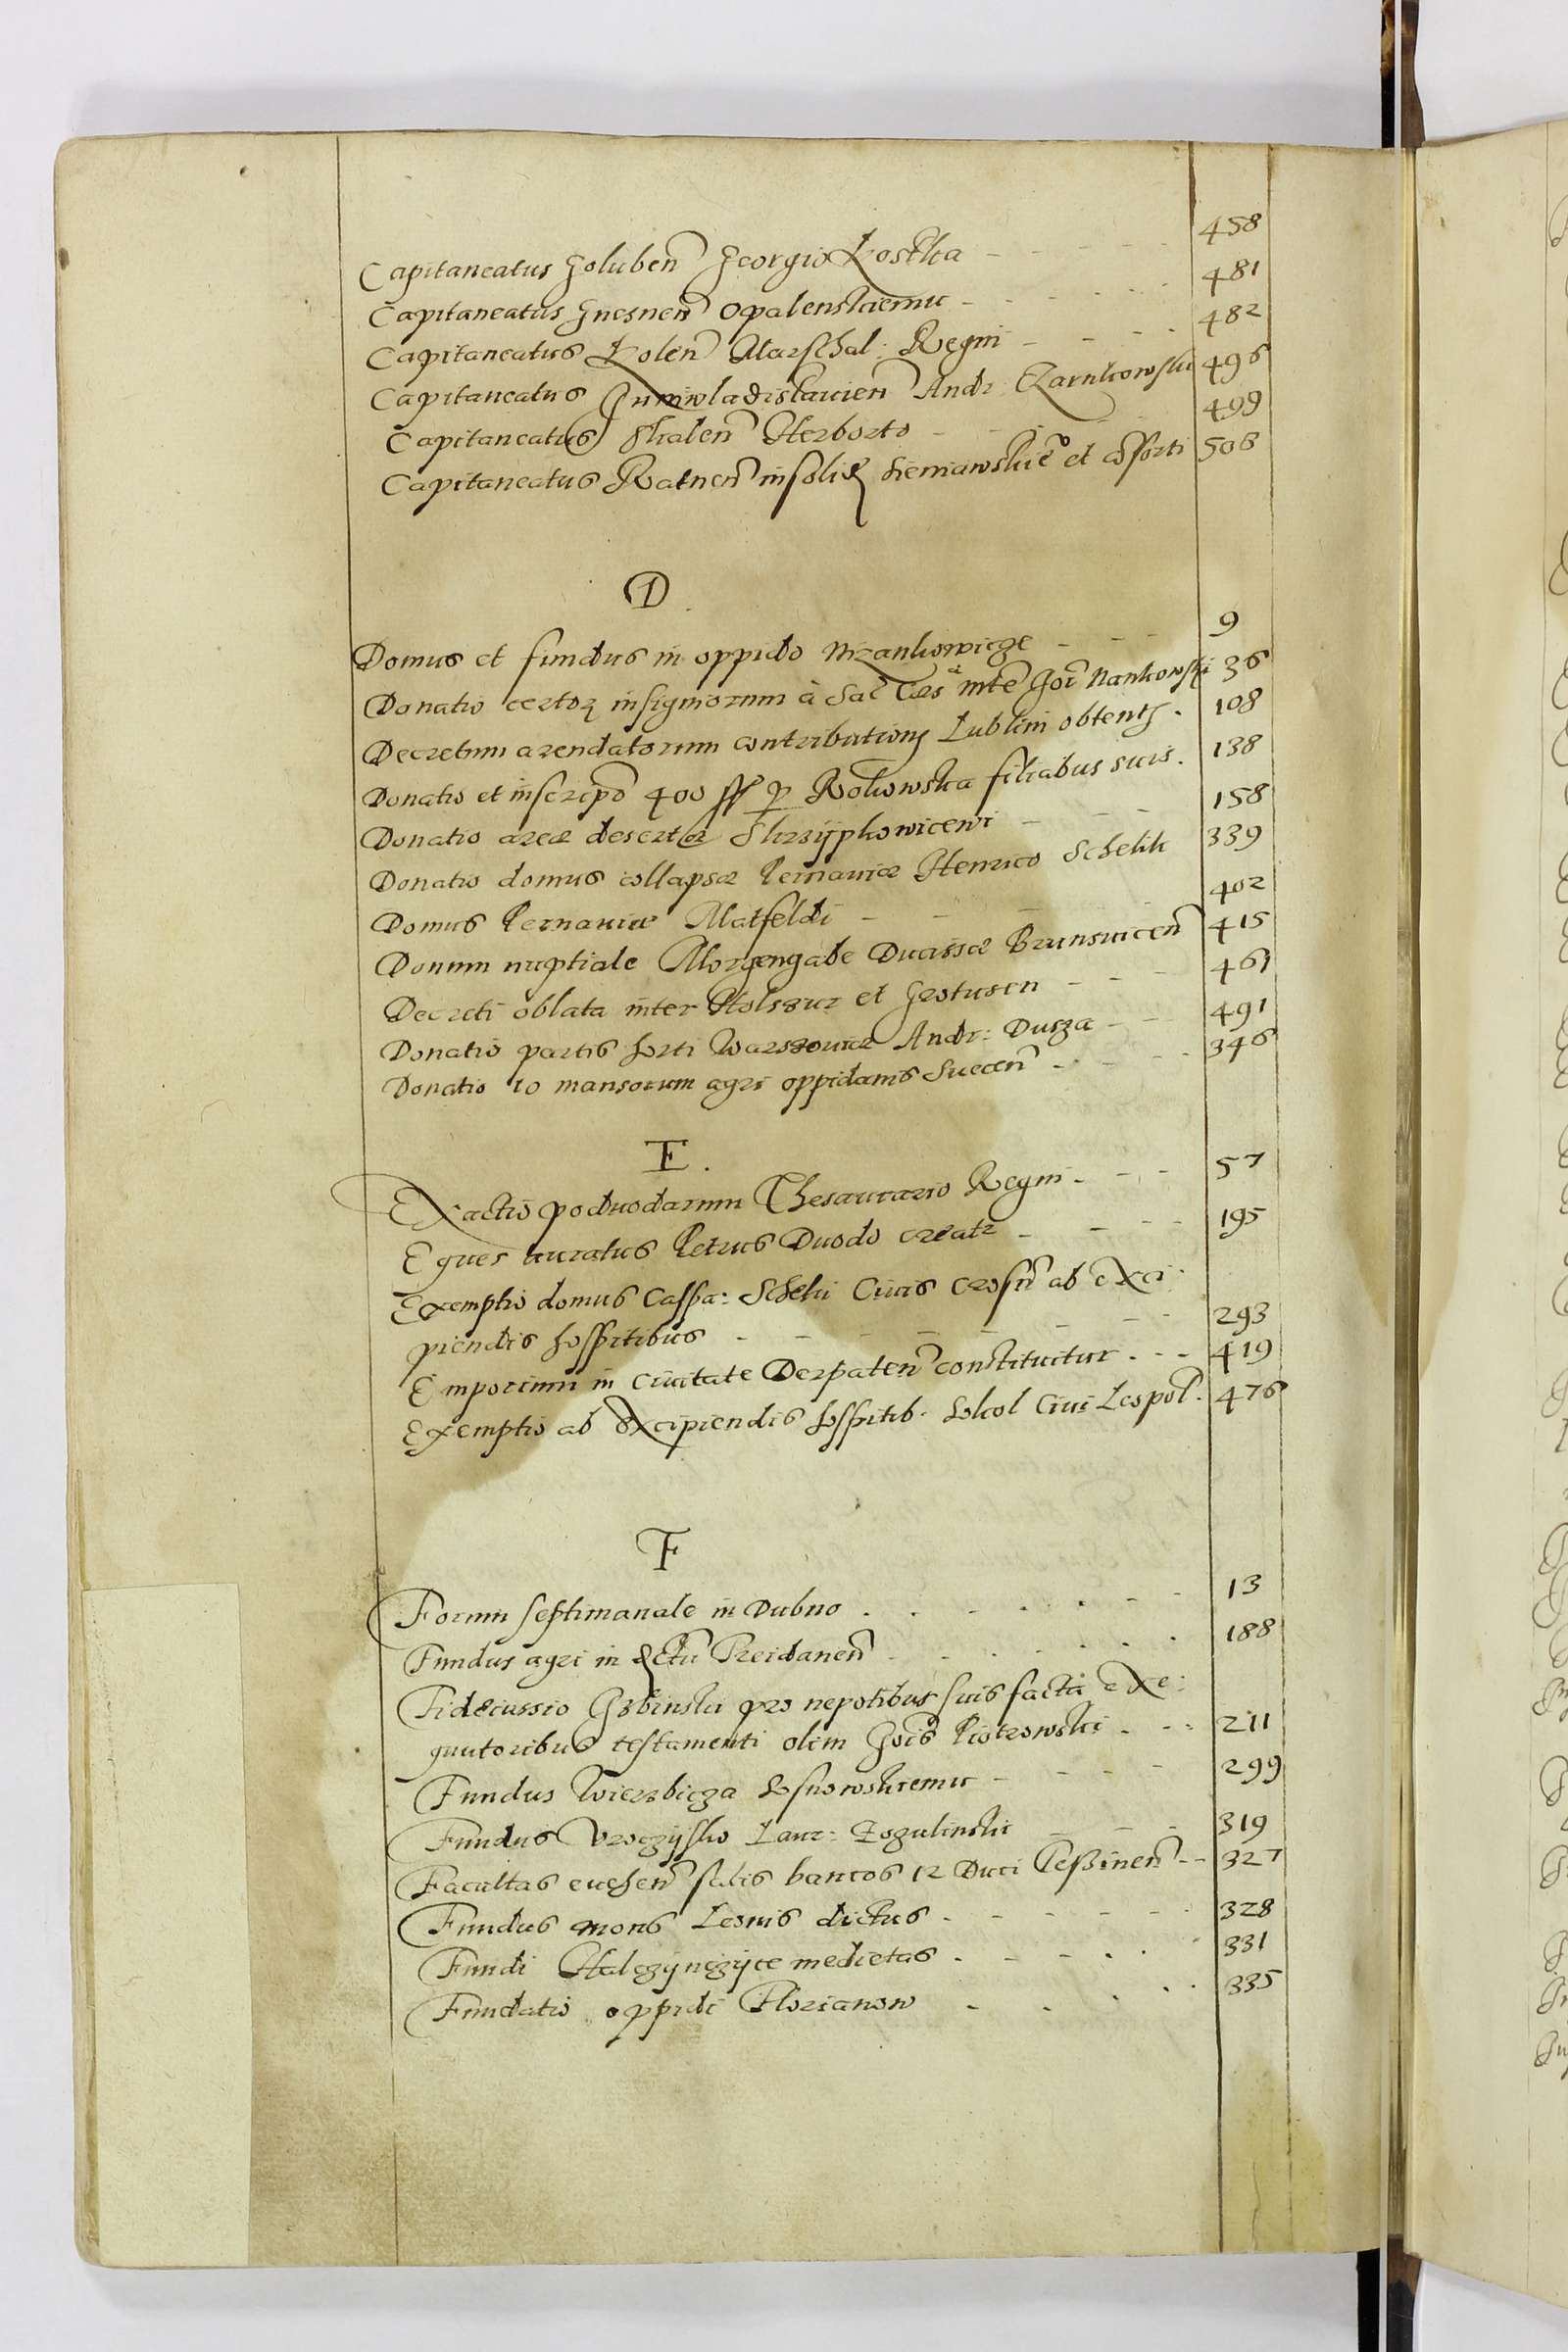 Capitaneatus Goluben Georgio Kostka - - - - 458
Capitaneatus Gnesnen Opalenskiemu - - - - 481
Capitaneatus Kolen Marschal: Regni - - - - 482
Capitaneatus Juniwladislavien Andr: Czarnkowski 496
Capitaneatus Skalen Herborto - - - - 499
Capitaneatus Ratnen in solid Sieniawskie et consorti 506
D
Domus et fundus in oppido Nizankowicze - - - 9
Donatio certor insigniorum à Sac Caes Mte Joi Nankowski 36
Decretum arendatorum contributionis Lublini obtentis . 108
Donatio et inscripo 400 ff p Rokowska filiabus suis . 138
Donatio areae desertae Skrzypkowicewi - - - 158
Donatio domus collapsae Pernaviae Henrico Schelik 339
Domus Pernaviae Matfeldi - - - 402
Donum nuptiale Morgengabe Ducissae Brunsvicen 415
Decreti oblata inter Holszur et Grotusen - - - 461
Donatio partis horti Warszoviae Andr: Dusza - - - 491
Donatio 10 mansorum agri oppidanis Suecen - - - 346
E.
Exactio podwodarum Thesaurario Regni - - - 57
Eques auratus Petrus Duodo creatr - - - 195
Exemptio domus Caspa: Schelii Civis Crosn ab exci:
piendis hospitibus - - - - - - - 293
Emporium in civitate Derpaten constituitur . - - 419
Exemptio ab excipiendis hospitib. Sokol Civi Leopol. 476
F
Forum septimanale in Dubno . . - . . - - 13
Fundus agri in Treidanen - . . . . 188
Fideiussio Gobinski pro nepotibus suis facta exe:
quutoribus testamenti olim Jois Piotrowski - - - 211
Fundus Wierzbicza Sosnowskiemu - - - - 299
Fundus Uroczysko Laur: Rogulinski - - - 319
Facultas evehen salis bancos 12 Duci Teßinen - - 327
Fundus mons Lesnis dictus - - - - - 328
Fundi Halczynczyce medietas . - - . . 331
Fundatio oppidi Florianow - . . . . 335